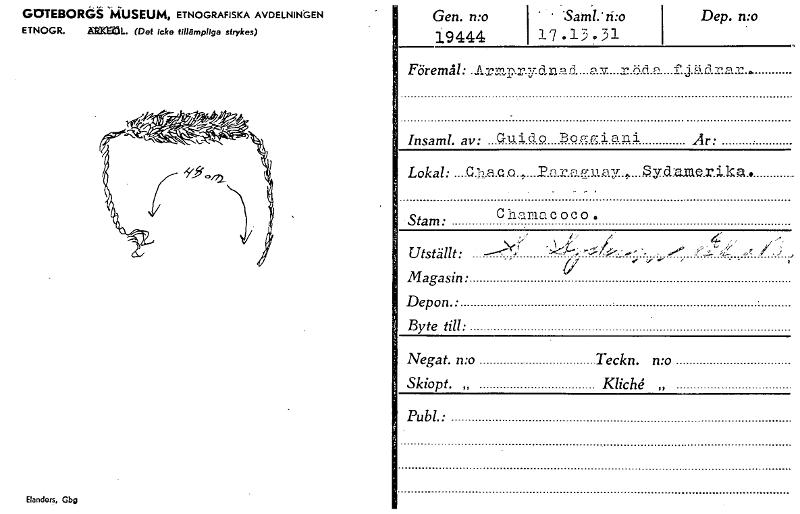 GÖTEBORGS MUSEUM, ETNOGRAFISKA AVDELNINGEN
ETNOGR. ARKEOL. (Det icke tillämpliga strykes)
48 cm
Elanders, Gbg
Gen. n:o Saml. n:o Dep. n:o
19444 17.13.31
Föremål: Armprydnad av röda fjädrar.
Insaml. av: Guido Boggiani År:
Lokal: Chaco, Paraguay, Sydamerika.
Stam: Chamacoco.
Utställt:
Magasin:
Depon.:
Byte till:
Negat. n:o Teckn. n:o
Skiopt. „ Kliché „
Publ.: